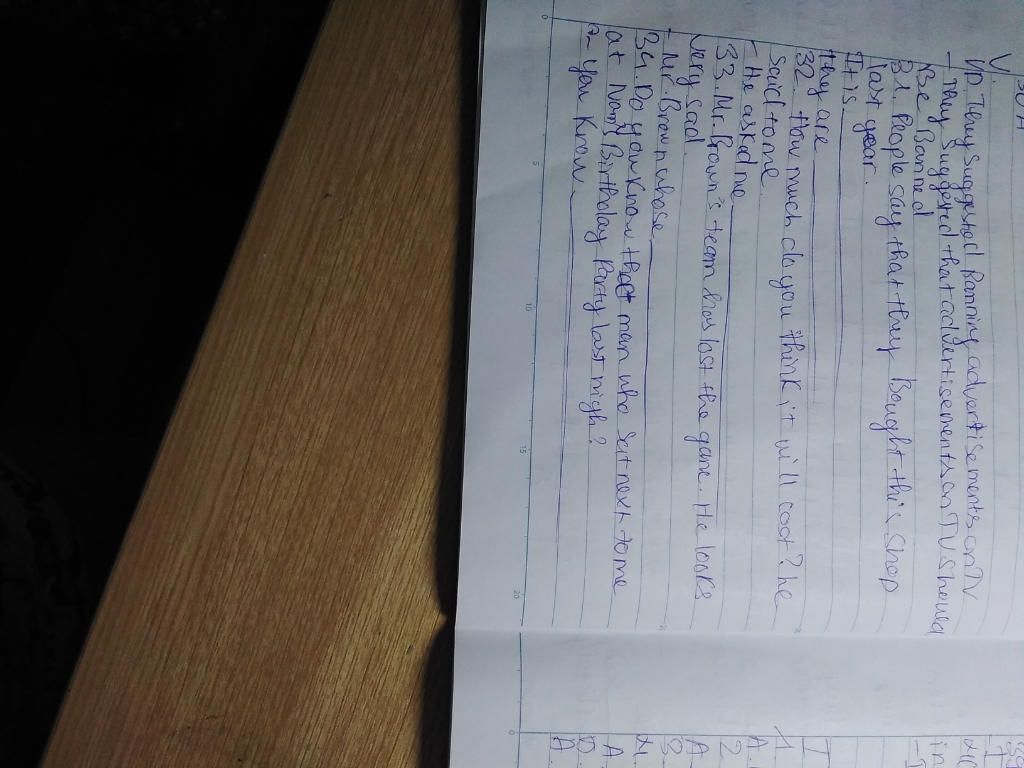 30A
V
VD. They suggested Panning advertisements on TV
- They suggested that advertisements on TV showed
Be Banned
31. People say that they Bought this Shop
last year.
It is
they are
32. How much do you think it will coot? he
said to me.
- He asked me
33. Mr. Brown's team has lost the game. He looks
very sad.
- Mr. Brown whose
34. Do you know that man who sat next to me
at Nam Birthday Party last nigh?
- You Know
20
15
10
5
0
0
I
1.
A.
2
A
3
A